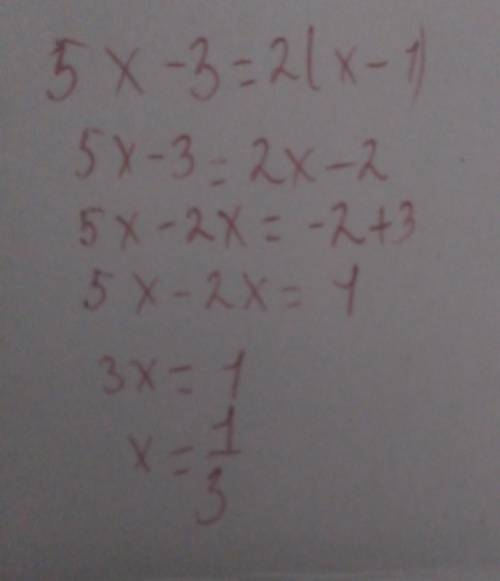 5x-3=2(x-1)
5x-3=2x-2
5x-2x=-2+3
5x-2x=1
3x=1
x=1/3